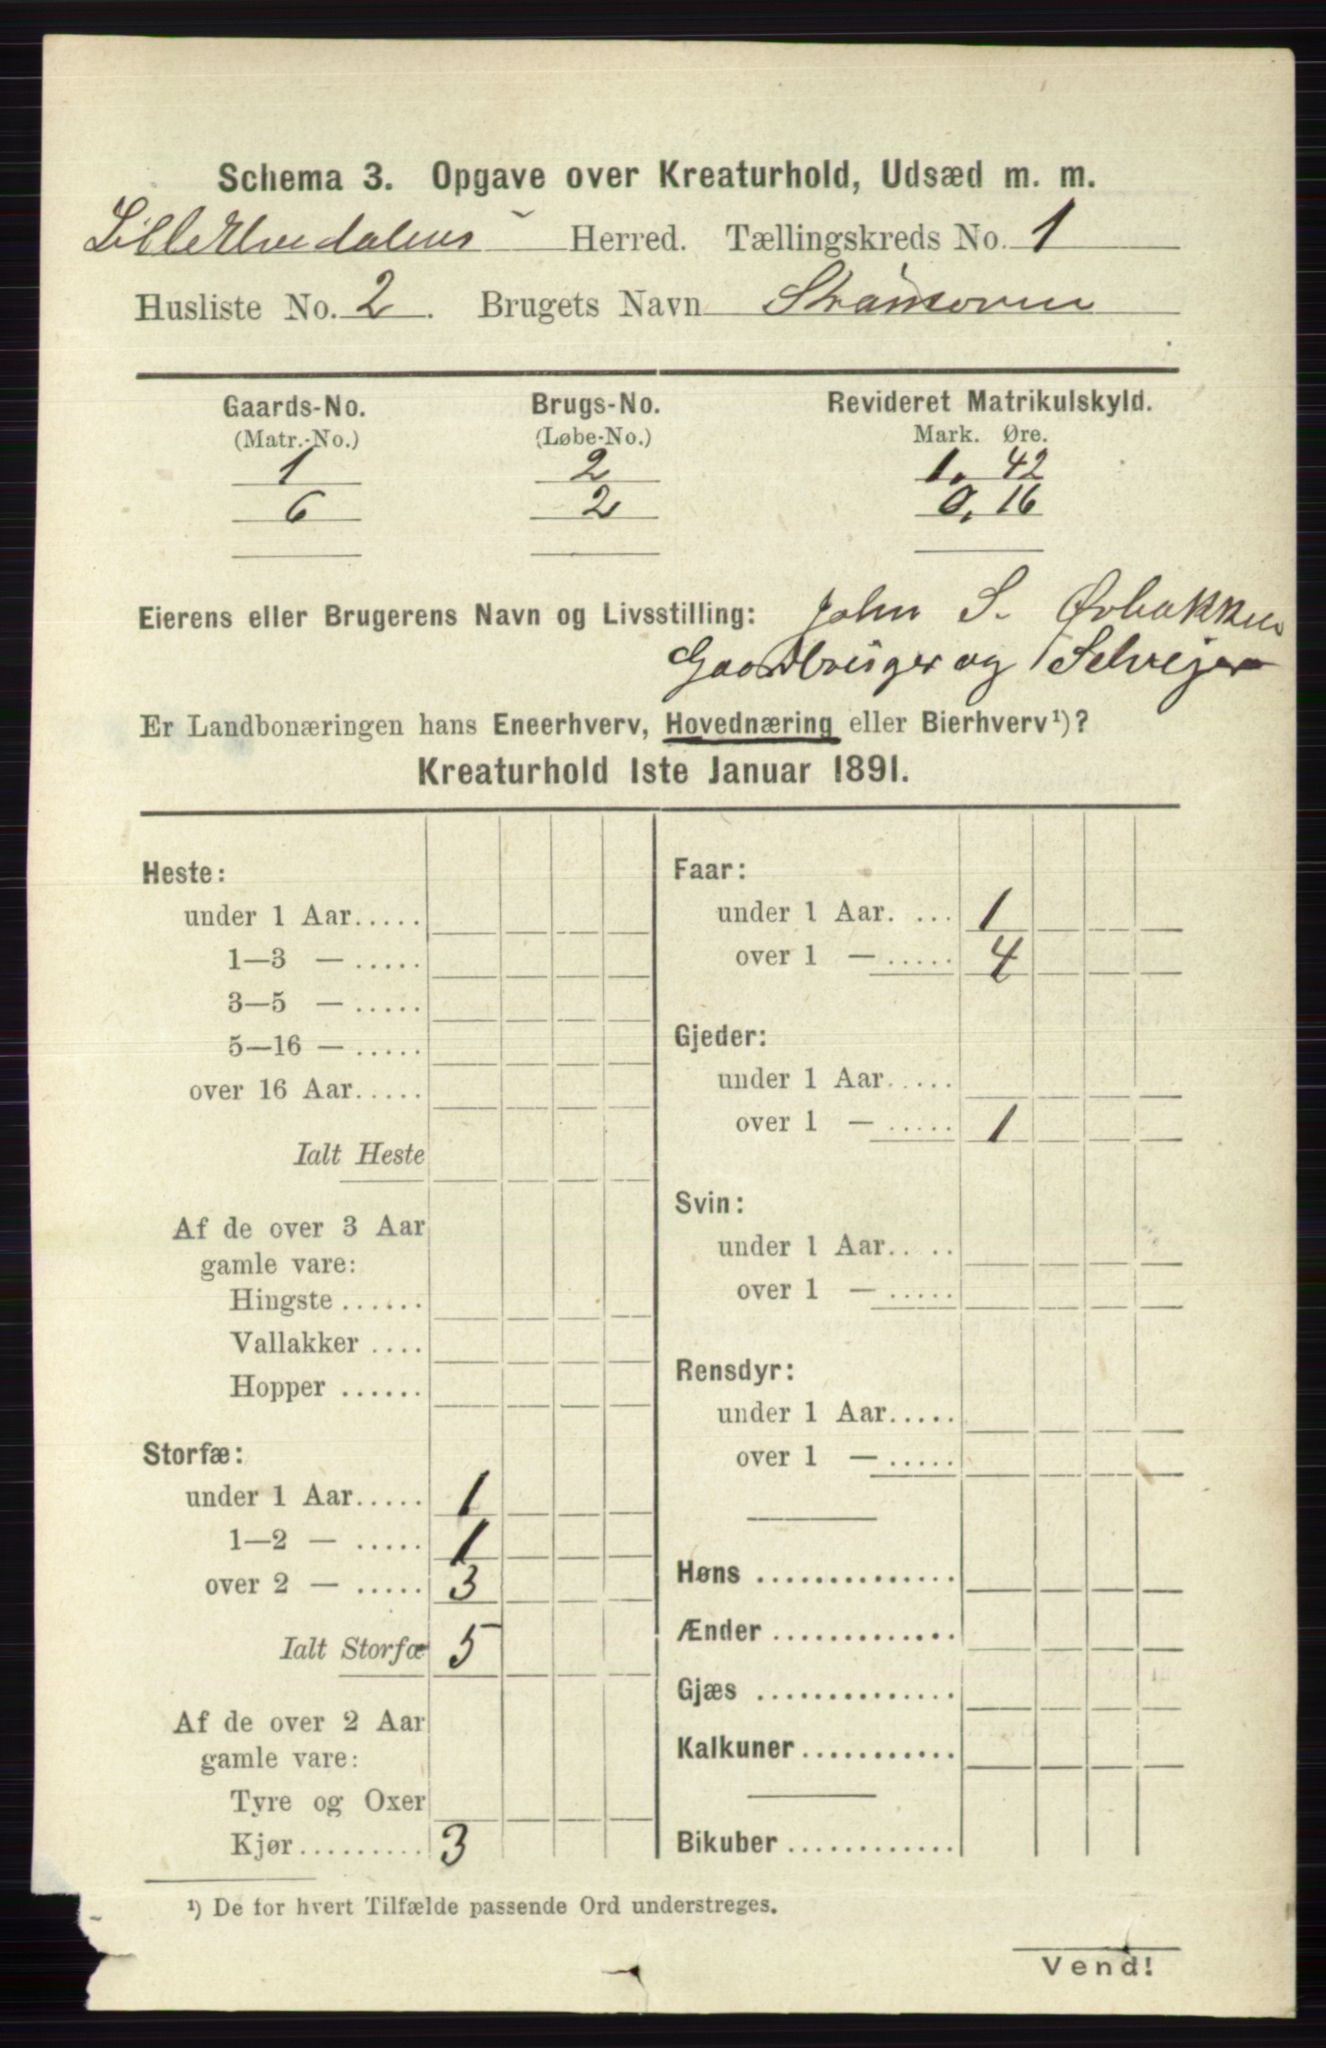 Schema 3. Opgave over Kreaturhold, Udsæd m. m.
Lille Elvedalens Herred. Tællingskreds No. 1
Husliste No. 2. Brugets Navn
Gaards-No. Brugs-No. Revideret Matrikulskyld.
(Matr.-No.) (Løbe-No.) Mark. Øre.
1 2 1. 42
6 2 0. 16
Eierens eller Brugerens Navn og Livsstilling: John S. Øvbakken
Gaardbruger og Selveier
Er Landbonæringen hans Eneerhverv, Hovednæring eller Bierhverv¹)?
Kreaturhold 1ste Januar 1891.
Heste:
under 1 Aar.....
1—3 — .....
3—5 — .....
5—16 — .....
over 16 Aar.....
Ialt Heste
Af de over 3 Aar
gamle vare:
Hingste ......
Vallakker ....
Hopper ......
Storfæ:
under 1 Aar..... 1
1—2 — ..... 1
over 2 — ..... 3
Ialt Storfæ 5
Af de over 2 Aar
gamle vare:
Tyre og Oxer
Kjør......... 3
Faar:
under 1 Aar. ... 1
over 1 — ..... 4
Gjeder:
under 1 Aar.....
over 1 — ..... 1
Svin:
under 1 Aar.. ..
over 1 — .....
Rensdyr:
under 1 Aar.....
over 1 — .....
Høns ..............
Ænder .............
Gjæs ..............
Kalkuner...........
Bikuber ............
¹) De for hvert Tilfælde passende Ord understreges.
Vend!